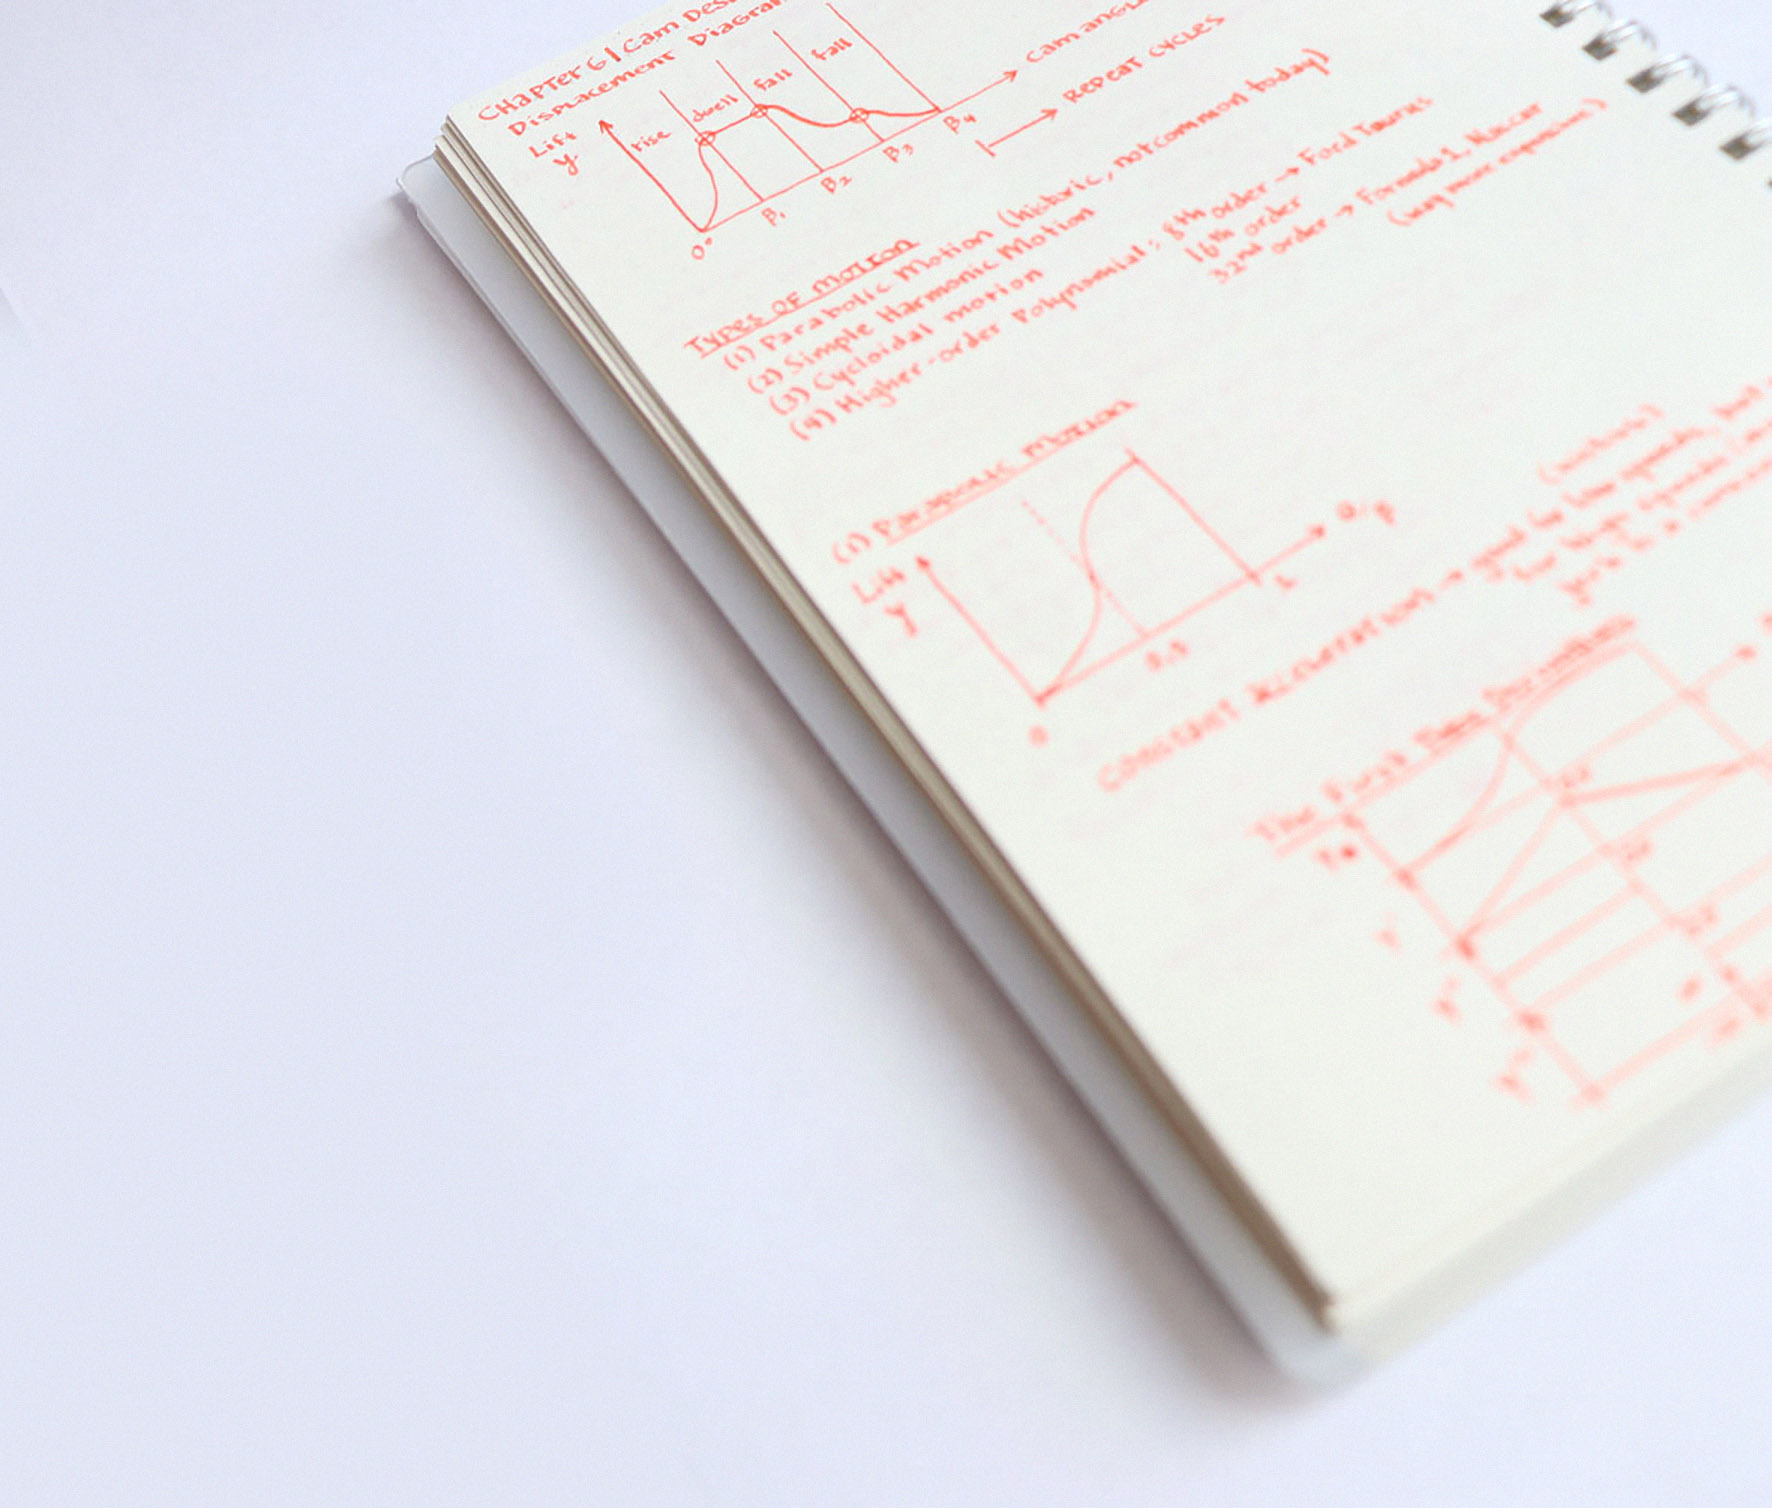 CHAPTER 6 | Cam Des
Displacement Diagram
Lift
y
rise
dwell
fall
fall
0°
β₁
β₂
β₃
β₄
Cam angl
REPEAT CYCLES
TYPES OF MOTION
(1) Parabolic Motion (historic, not common today)
(2) Simple Harmonic Motion
(3) Cycloidal motion
(4) Higher-order Polynomial: 8th order → Ford Taurus
16th order
32nd order → Formula 1, Nascar
(way more expensive)
(1) Parabolic Motion
Lift
y
0
0.5
1
CONSTANT ACCELERATION → good for low speeds, but
for high speeds
The First Two Derivatives